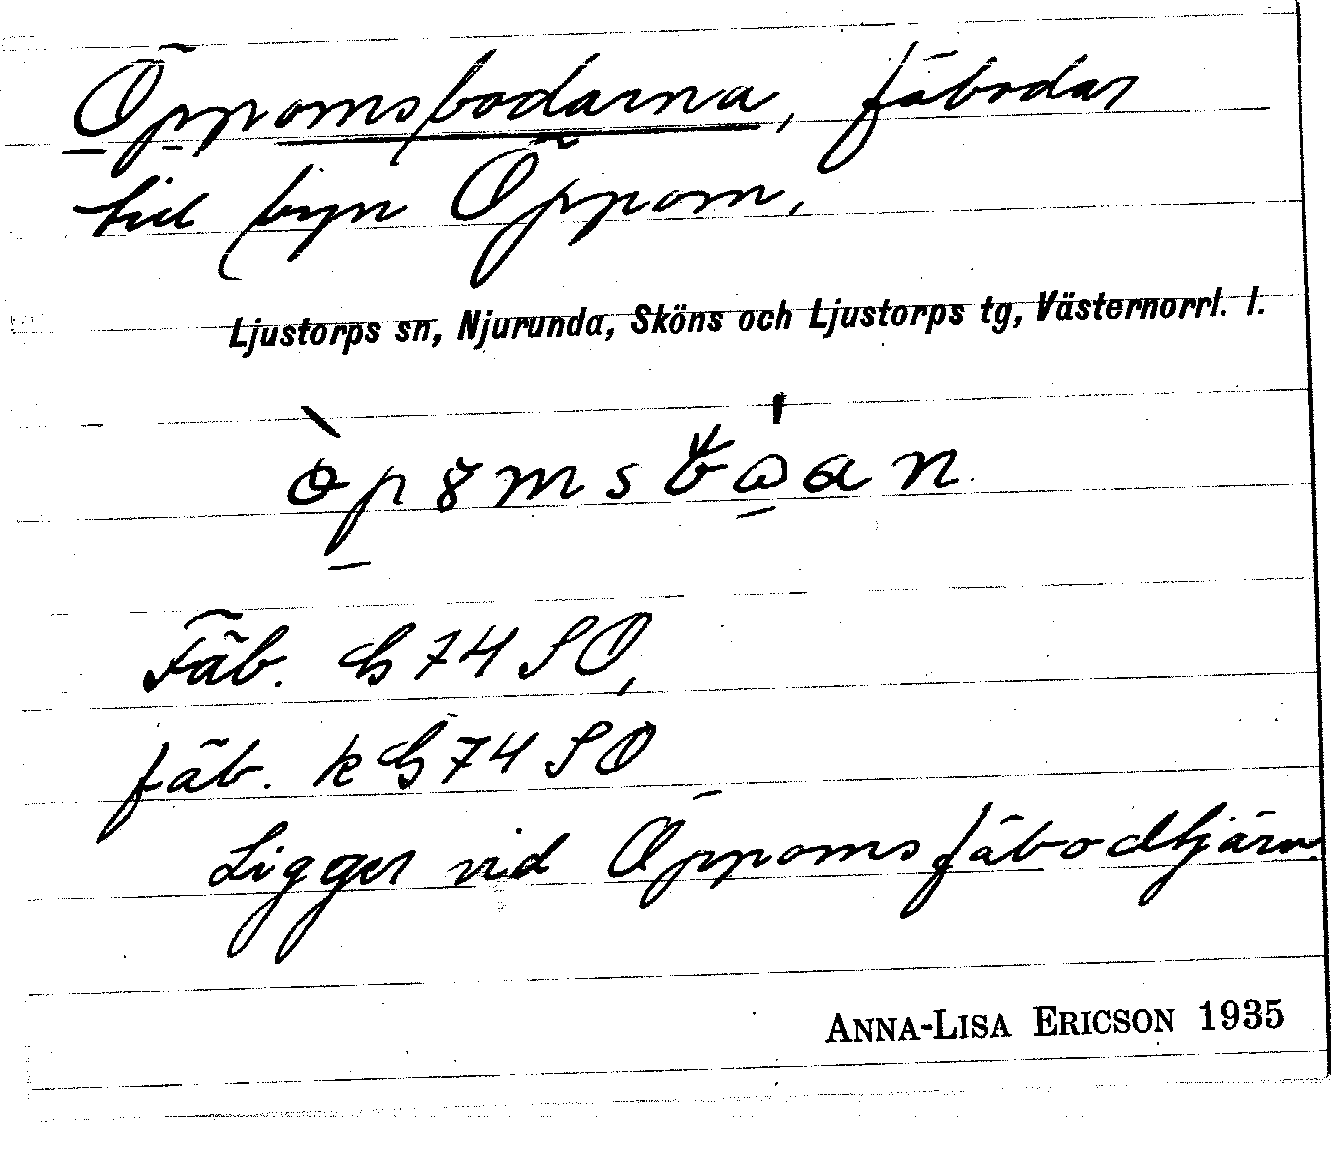 Öppomsbodarna, fäbodar
till byn Öppom.
Ljustorps sn, Njurunda, Sköns och Ljustorps tg, Västernorrl. l.
Fäb. G 74 SO,
fäb. k G 74 SO
Ligger vid Öppoms fäbodtjärn.
ANNA-LISA ERICSON 1935